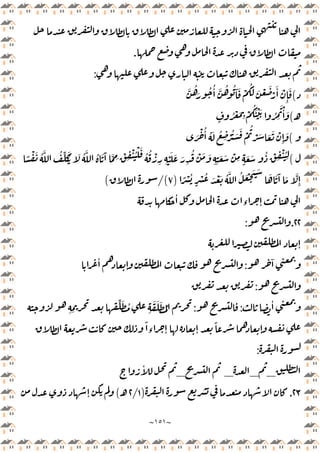 الى هنا تنتهي الحياة الزوجية للعازمين على الطلاق بالطلاق والتفريق عندما حل
ميقات الطلاق في دبر عدة الحامل وهي وضع حملها.
ثم بعد التفريق هناك تبعات بينه الباري عز وجل على عليها وهي:
د) فَإِنْ أَرْضَعْنَ لَكُمْ فَآتُوهُنَّ أُجُورَهُنَّ
ه) وَأْتَمِرُوا بَيْنَكُمْ بِمَعْرُوفٍ
و) وَإِنْ تَعَاسَرْتُمْ فَسَتُرْضِعُ لَهُ أُخْرَى
ل) لِيُنْفِقْ ذُو سَعَةٍ مِنْ سَعَتِهِ وَمَنْ قُدِرَ عَلَيْهِ رِزْقُهُ فَلْيُنْفِقْ مِمَّا آتَاهُ اللَّهُ لَا يُكَلِّفُ اللَّهُ نَفْسًا
إِلَّا مَا آتَاهَا سَيَجْعَلُ اللَّهُ بَعْدَ عُسْرٍ يُسْرًا (٧)/سورة الطلاق)
الى هنا تمت اجراءات عدة الحامل وكل أحكامها بدقة
٢٢. والتسريح هو:
ابعاد المطلقين ليصيرا للغريبة
وبمعنى آخر هو: والتسريح هو: فك تبعات المطلقين وابعادهم أغرابا
والتسريح هو: تفريق بعد تفريق
وبمعنى أيضا ثالث: فالتسريح هو: تحريم المطلقة على مطلقها بعد تحريمه هو لزوجيته
على نفسه وابعادهما شرعا بعد إبعاده لها إجراءا وذلك حين كانت شريعة الطلاق
لسورة البقرة:
التطليق_ ثم_ العدة_ ثم التسريح_ ثم تحل للأزواج
٢٣. كان الاشهاد منعدما في تشريع سورة البقرة(٢/١ هـ) ولم يكن إشهاد ذوي عدل من
~١٥١~